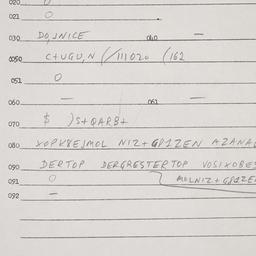 020
021 0
030 DO,JNICE 040 —
050 C+UGU,N (/111020 (162
051 0
060 — 061 —
070 $ )S+QARB+
080 XOPKBEJMOL NIZ+GPIZEN AZANA
090 DERTOP DERGRESTERTOP VOSIXOBES
091 0 MOLNIZ+GPIZE
092 —